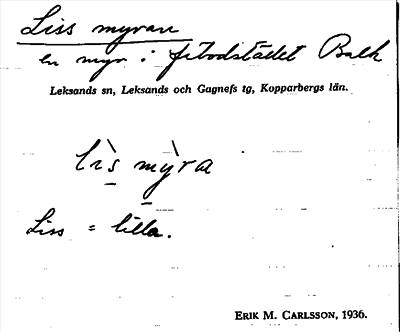 Liss myran
en myr i fäbodstället Balk
Leksands sn, Leksands och Gagnefs tg, Kopparbergs län.
lìs mỳra
Liss = lilla.
ERIK M. CARLSSON, 1936.